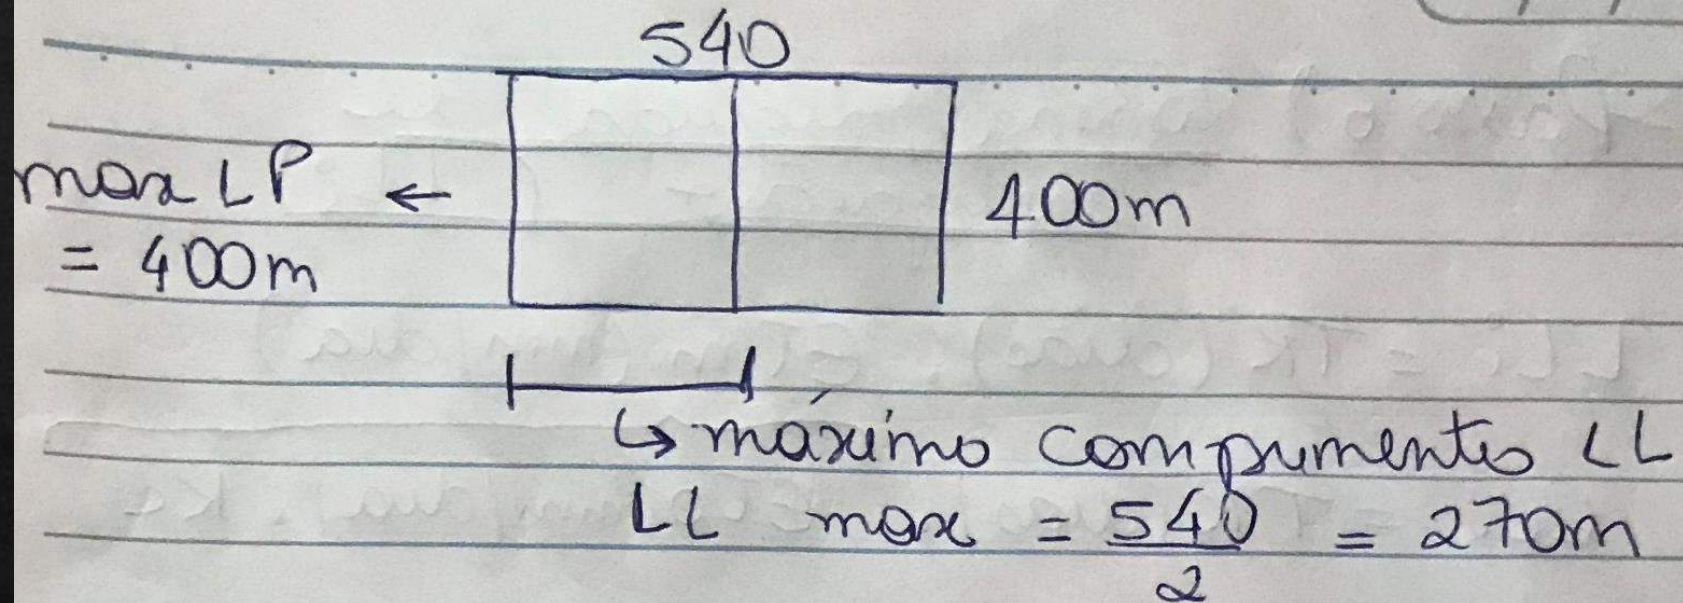 540
max LP ←
= 400m
400m
↳ máximo comprimento LL
LL max = 540/2 = 270m